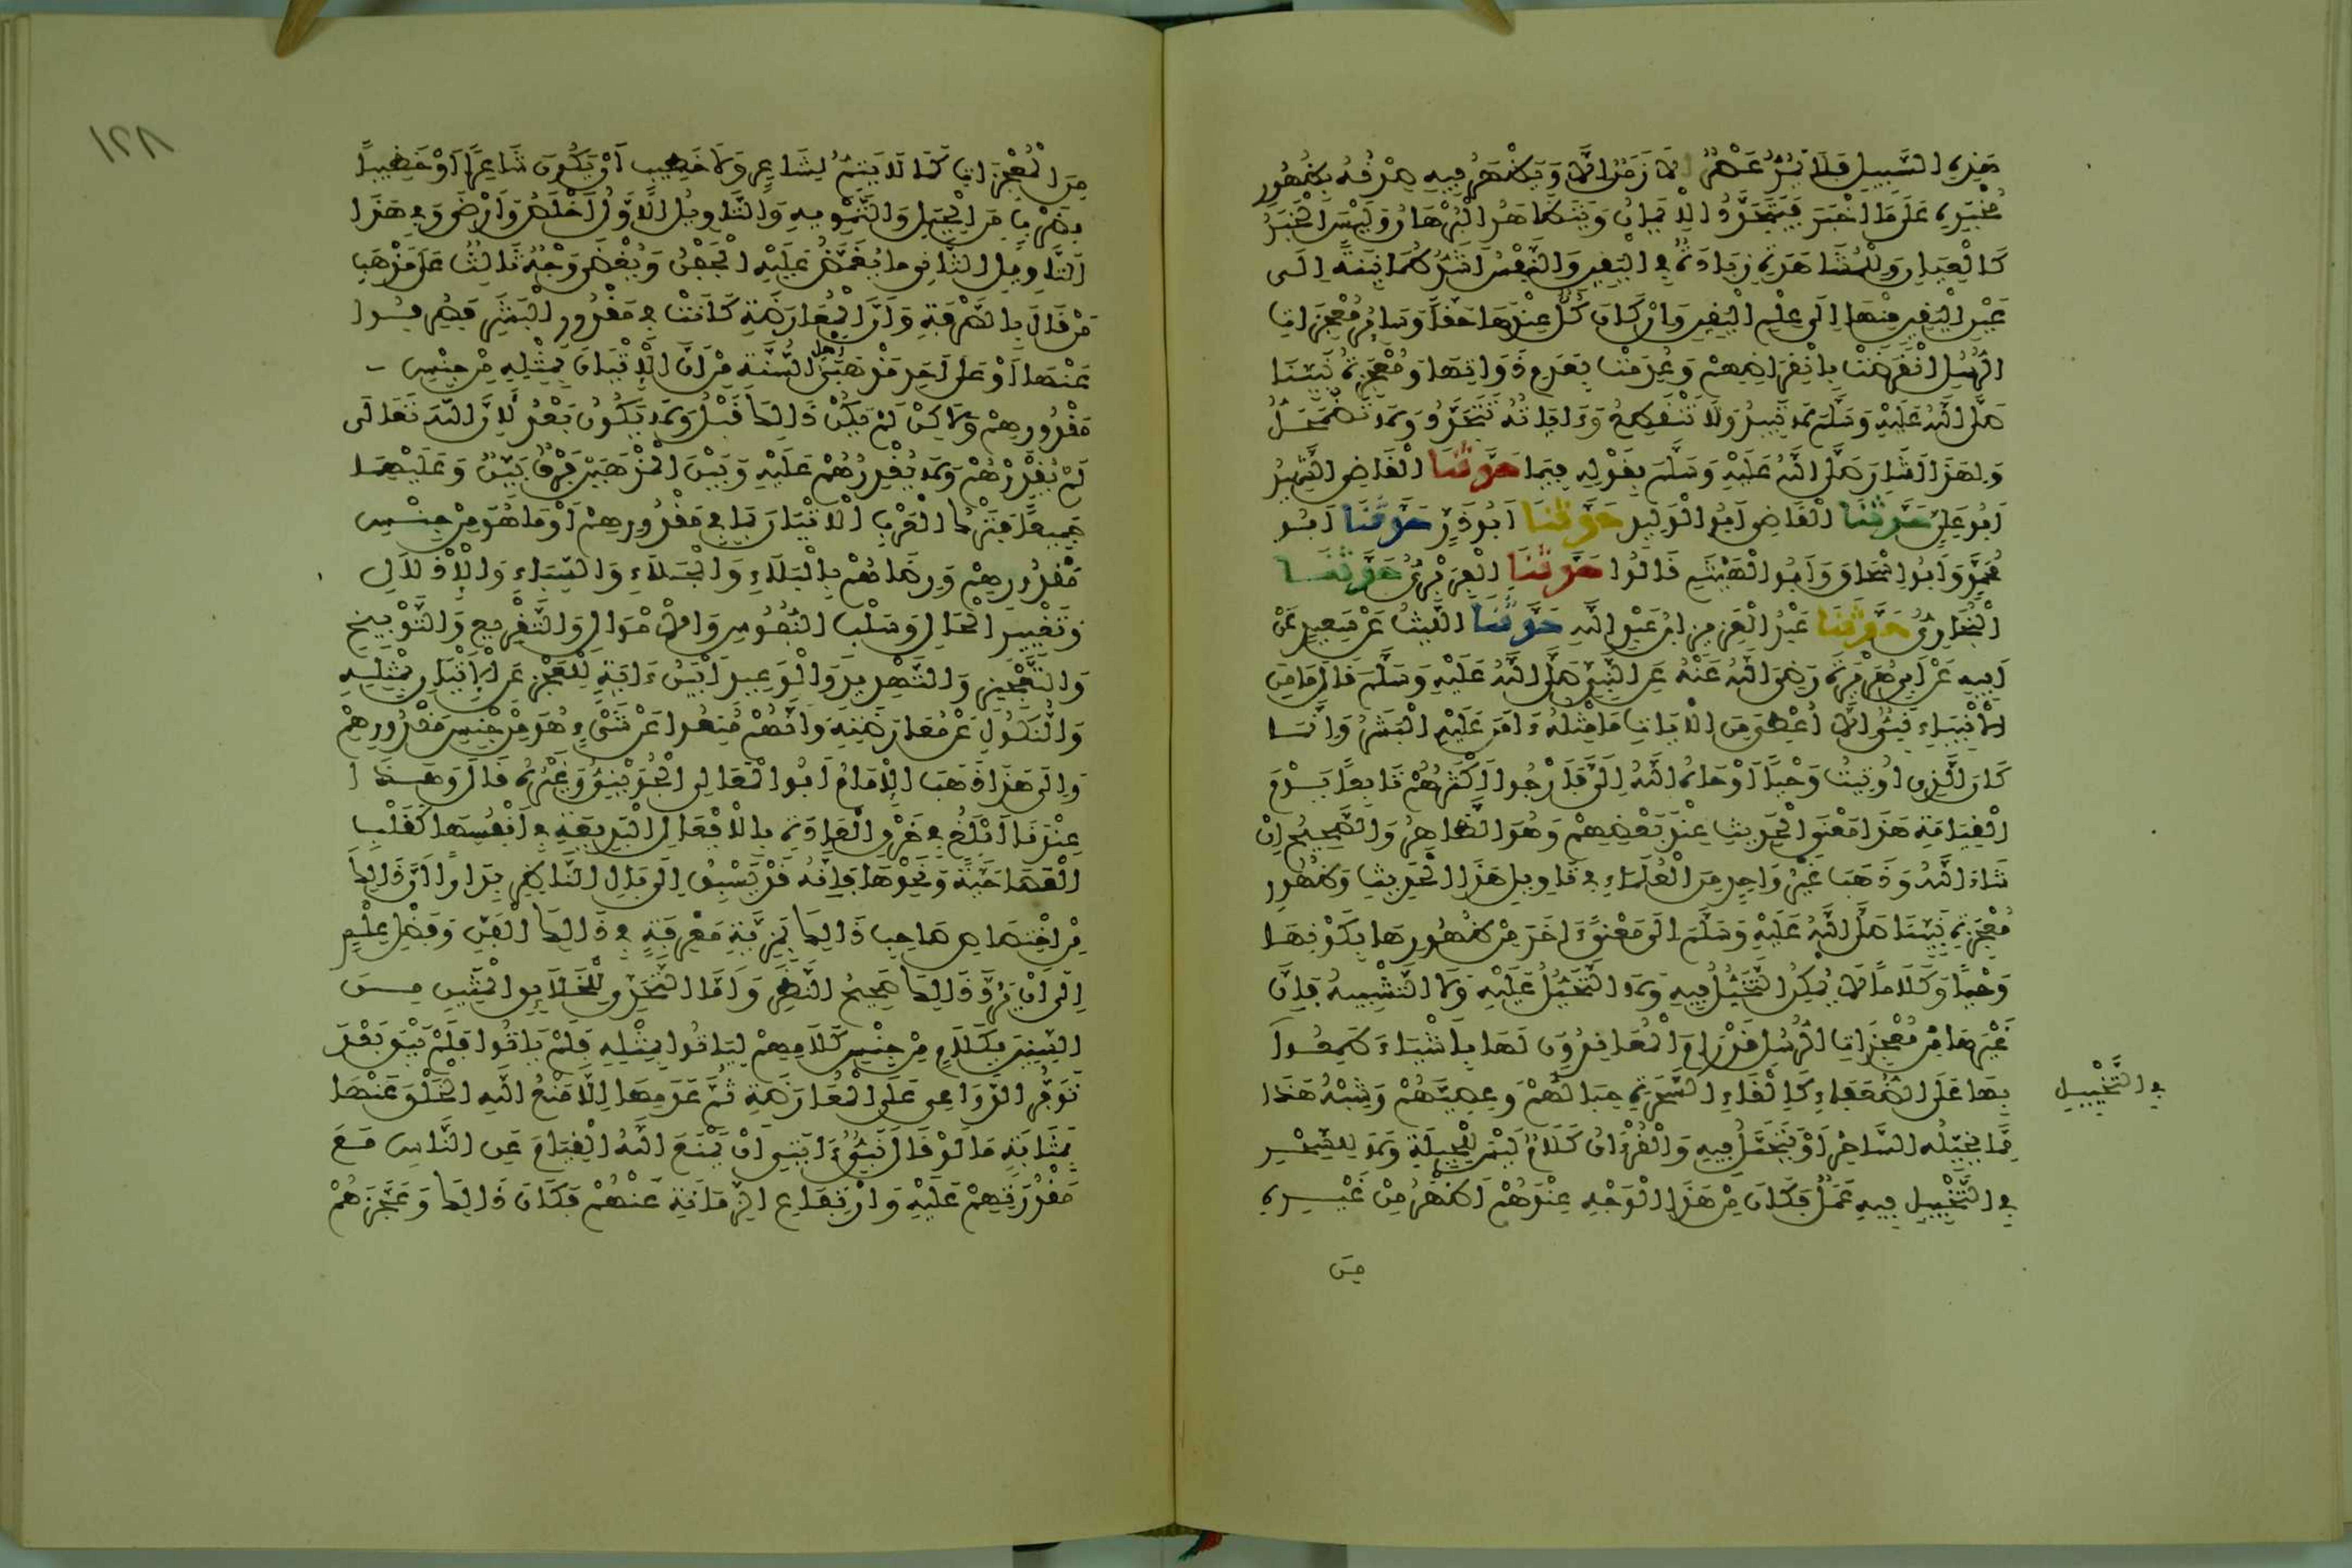 هَذِهِ السَّبِيلِ فَلَا يَمُرُّ عَصْرٌ وَلَا زَمَنٌ إِلَّا وَيَظْهَرُ فِيهِ صِدْقُهُ بِظُهُورِ
مُخْبَرِهِ عَلَى مَا أَخْبَرَ فَيَتَجَدَّدُ الْإِيمَانُ وَيَتَظَاهَرُ الْبُرْهَانُ وَلَيْسَ الْخَبَرُ
كَالْعِيَانِ وَلِلْمُشَاهَدَةِ زِيَادَةٌ فِي الْيَقِينِ وَالنَّفْسُ أَشَدُّ طُمَأْنِينَةً إِلَى
عَيْنِ الْيَقِينِ مِنْهَا إِلَى عِلْمِ الْيَقِينِ وَإِنْ كَانَ كُلٌّ عِنْدَهَا حَقًّا وَسَائِرُ مُعْجِزَاتِ
الرُّسُلِ انْقَرَضَتْ بِانْقِرَاضِهِمْ وَعُدِمَتْ بِعَدَمِ ذَوَاتِهَا وَمُعْجِزَةُ نَبِيِّنَا
صَلَّى اللَّهُ عَلَيْهِ وَسَلَّمَ لَا تَبِيدُ وَلَا تَنْقَطِعُ وَءَايَاتُهُ تَتَجَدَّدُ وَلَا تَضْمَحِلُّ
وَلِهَذَا أَشَارَ صَلَّى اللَّهُ عَلَيْهِ وَسَلَّمَ بِقَوْلِهِ فِيمَا حَدَّثَنَا الْقَاضِي الشَّهِيدُ
أَبُو عَلِيٍّ حَدَّثَنَا الْقَاضِي أَبُو الْوَلِيدِ حَدَّثَنَا أَبُو ذَرٍّ حَدَّثَنَا أَبُو
مُحَمَّدٍ وَأَبُو إِسْحَاقَ وَأَبُو الْهَيْثَمِ قَالُوا حَدَّثَنَا الْفِرَبْرِيُّ حَدَّثَنَا
الْبُخَارِيُّ حَدَّثَنَا عَبْدُ الْعَزِيزِ ابْنُ عَبْدِ اللَّهِ حَدَّثَنَا اللَّيْثُ عَنْ سَعِيدٍ عَنْ
أَبِيهِ عَنْ أَبِي هُرَيْرَةَ رَضِيَ اللَّهُ عَنْهُ عَنِ النَّبِيِّ صَلَّى اللَّهُ عَلَيْهِ وَسَلَّمَ قَالَ مَا مِنَ
الْأَنْبِيَاءِ نَبِيٌّ إِلَّا أُعْطِيَ مِنَ الْآيَاتِ مَا مِثْلُهُ ءَامَنَ عَلَيْهِ الْبَشَرُ وَإِنَّمَا
كَانَ الَّذِي أُوتِيتُ وَحْيًا أَوْحَاهُ اللَّهُ إِلَيَّ فَأَرْجُوا أَكْثَرُهُمْ تَابِعًا يَوْمَ
الْقِيَامَةِ هَذَا مَعْنَى الْحَدِيثِ عِنْدَ بَعْضِهِمْ وَهُوَ الظَّاهِرُ وَالصَّحِيحُ إِنْ
شَاءَ اللَّهُ وَذَهَبَ غَيْرُ وَاحِدٍ مِنَ الْعُلَمَاءِ فِي تَاوِيلِ هَذَا الْحَدِيثِ وَظُهُورِ
مُعْجِزَةِ نَبِيِّنَا صَلَّى اللَّهُ عَلَيْهِ وَسَلَّمَ إِلَى مَعْنًى ءَاخَرَ مِنْ ظُهُورِهَا بِكَوْنِهَا
وَحْيًا وَكَلَامًا لَا يُمْكِنُ التَّخَيُّلُ فِيهِ وَلَا التَّحَيُّلُ عَلَيْهِ وَلَا التَّشْبِيهُ فَإِنَّ
غَيْرَهَا مِنْ مُعْجِزَاتِ الرُّسُلِ قَدْ رَامَ الْمُعَانِدُونَ لَهَا بِأَشْيَاءَ طَمِعُوا
بِهَا عَلَى الضُّعَفَاءِ كَإِلْقَاءِ السَّحَرَةِ حِبَالَهُمْ وَعِصِيَّهُمْ وَشِبْهُ هَذَا
مِمَّا يُخَيِّلُهُ السَّاحِرُ أَوْ يَتَحَيَّلُ فِيهِ وَالْقُرْءَانُ كَلَامٌ لَيْسَ لِلْحِيلَةِ وَلَا لِلسِّحْرِ
فِي التَّخْيِيلِ فِيهِ عَمَلٌ فَكَانَ مِنْ هَذَا الْوَجْهِ عِنْدَهُمْ أَظْهَرُ مِنْ غَيْرِهِ
فِي التَّخْيِيلِ
مِنَ
١٢٨
مِنَ الْمُعْجِزَاتِ كَمَا لَا يَتِمُّ لِشَاعِرٍ وَلَا خَطِيبٍ أَوْ يَكُونَ شَاعِرًا أَوْ خَطِيبًا
بِضَرْبٍ مِنَ الْحِيَلِ وَالتَّمْوِيهِ وَالتَّاوِيلُ الْأَوَّلُ أَخْلَصُ وَأَرْضَى وَفِي هَذَا
التَّاوِيلِ الثَّانِي مَا يُغَمَّضُ عَلَيْهِ الْجَفْنُ وَيُغْضَى وَجْهٌ ثَالِثٌ عَلَى مَذْهَبِ
مَنْ قَالَ بِالصَّرْفَةِ وَأَنَّ الْمُعَارَضَةَ كَانَتْ فِي مَقْدُورِ الْبَشَرِ فَصُرِفُوا
عَنْهَا أَوْ عَلَى أَحَدِ مَذْهَبَيْ أَهْلِ السُّنَّةِ مِنْ أَنَّ الْإِتْيَانَ بِمِثْلِهِ مِنْ جِنْسِ
مَقْدُورِهِمْ وَلَكِنْ لَمْ يَكُنْ ذَلِكَ قَبْلُ وَلَا يَكُونُ بَعْدُ لِأَنَّ اللَّهَ تَعَالَى
لَمْ يُقْدِرْهُمْ وَلَا يُقْدِرُهُمْ عَلَيْهِ وَبَيْنَ الْمَذْهَبَيْنِ فَرْقٌ بَيِّنٌ وَعَلَيْهِمَا
جَمِيعًا فَتَرْكُ الْعَرَبِ الْإِتْيَانَ بِمَا فِي مَقْدُورِهِمْ أَوْ مَا هُوَ مِنْ جِنْسِ
مَقْدُورِهِمْ وَرِضَاهُمْ بِالْبَلَاءِ وَالْجَلَاءِ وَالسِّبَاءِ وَالْإِذْلَالِ
وَتَغْيِيرِ الْحَالِ وَسَلْبِ النُّفُوسِ وَالْأَمْوَالِ وَالتَّقْرِيعِ وَالتَّوْبِيخِ
وَالتَّعْجِيزِ وَالتَّهْدِيدِ وَالْوَعِيدِ أَبْيَنُ ءَايَةٍ لِلْعَجْزِ عَنِ الْإِتْيَانِ بِمِثْلِهِ
وَالنُّكُولِ عَنْ مُعَارَضَتِهِ وَأَنَّهُمْ مُنِعُوا عَنْ شَيْءٍ هُوَ مِنْ جِنْسِ مَقْدُورِهِمْ
وَإِلَى هَذَا ذَهَبَ الْإِمَامُ أَبُو الْمَعَالِي الْجُوَيْنِيُّ وَغَيْرُهُ قَالَ وَهَذَا
عِنْدَنَا أَبْلَغُ فِي خَرْقِ الْعَادَةِ بِالْأَفْعَالِ الْبَدِيعَةِ فِي أَنْفُسِهَا كَقَلْبِ
الْعَصَا حَيَّةً وَنَحْوِهَا فَإِنَّهُ قَدْ يَسْبِقُ إِلَى بَالِ النَّاظِرِ بِدَارًا أَنَّ ذَلِكَ
مِنِ اخْتِصَاصِ صَاحِبِ ذَلِكَ بِمَزِيَّةِ مَعْرِفَةٍ فِي ذَلِكَ الْفَنِّ وَفَضْلِ عِلْمٍ
إِلَى أَنْ يَرُدَّ ذَلِكَ صَحِيحُ النَّظَرِ وَأَمَّا التَّحَدِّي لِلْخَلَائِقِ الْمِئِينَ مِنَ
السِّنِينَ بِكَلَامٍ مِنْ جِنْسِ كَلَامِهِمْ لِيَاتُوا بِمِثْلِهِ فَلَمْ يَاتُوا فَلَمْ يَبْقَ بَعْدَ
تَوَفُّرِ الدَّوَاعِي عَلَى الْمُعَارَضَةِ ثُمَّ عَدَمِهَا إِلَّا مَنْعُ اللَّهِ الْخَلْقَ عَنْهَا
بِمَثَابَةِ مَا لَوْ قَالَ نَبِيٌّ ءَايَتِي أَنْ يَمْنَعَ اللَّهُ الْقِيَامَ عَنِ النَّاسِ مَعَ
مَقْدُرَتِهِمْ عَلَيْهِ وَارْتِفَاعِ الزَّمَانَةِ عَنْهُمْ فَكَانَ ذَلِكَ وَعَجَّزَهُمْ